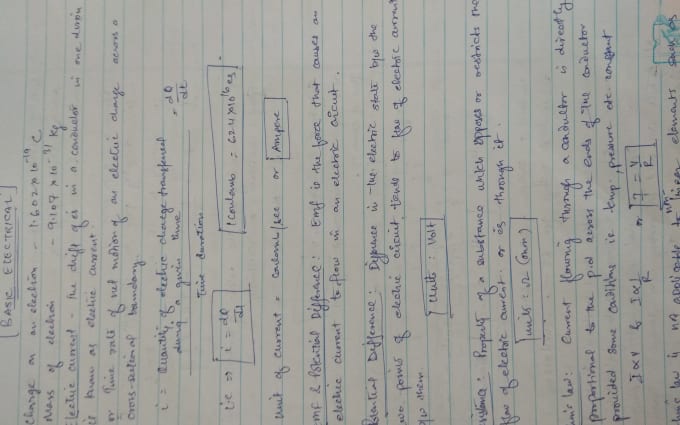 [BASIC ELECTRICAL]
Charge on an electron - 1.602 x 10^-19 C
Mass of electron - 9.107 x 10^-31 Kg
Electric current - The drift of es in a conductor in one
is known as electric current.
or Time rate of net motion of an electric charge across a
cross-sectional boundary.
i = Quantity of electric charge transferred = dQ
during a given time dt
Time duration
i.e ⇒ i = dQ/dt 1 Coulomb = 62.4 x 10^16 es
Unit of current = coulomb/sec or Ampere
emf & Potential Difference : Emf is the force that causes an
electric current to flow in an electric circuit.
Potential Difference : Difference in the electric state b/w the
two points of electric circuit tends to flow of electric current
b/w them
Units : Volt
Property of a substance which opposes or restricts the
flow of electric current or es through it.
Units : Ω (ohm)
law : Current flowing through a conductor is directly
proportional to the p.d across the ends of the conductor
provided some conditions ie temp, pressure etc. constant
I ∝ V & I ∝ 1/R or I = V/R
law is not applicable to non-linear elements such as